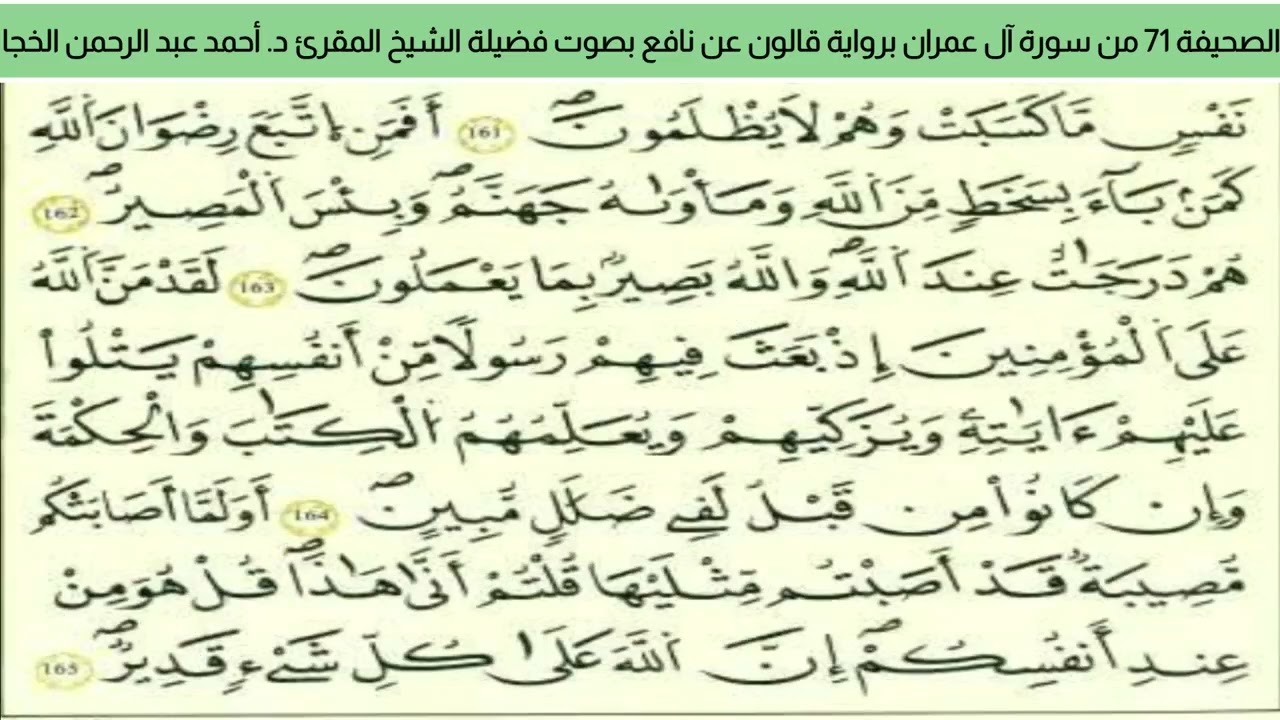 الصحيفة 71 من سورة آل عمران برواية قالون عن نافع بصوت فضيلة الشيخ المقرئ د. أحمد عبد الرحمن الخجا
نَفْسٖ مَّا كَسَبَتْ وَهُمْ لَا يُظْلَمُونَۖ 161 أَفَمَنِ اِتَّبَعَ رِضْوَانَ اَ۬للَّهِ
كَمَنۢ بَآءَ بِسَخَطٖ مِّنَ اَ۬للَّهِ وَمَأْوَىٰهُ جَهَنَّمُۖ وَبِئْسَ اَ۬لْمَصِيرُۖ 162
هُمْ دَرَجَٰتٌ عِندَ اَ۬للَّهِۖ وَاللَّهُ بَصِيرُۢ بِمَا يَعْمَلُونَۖ 163 لَقَدْ مَنَّ اَ۬للَّهُ
عَلَى اَ۬لْمُؤْمِنِينَ إِذْ بَعَثَ فِيهِمْ رَسُولاٗ مِّنْ أَنفُسِهِمْ يَتْلُواْ
عَلَيْهِمْ ءَايَٰتِهِۦ وَيُزَكِّيهِمْ وَيُعَلِّمُهُمُ اُ۬لْكِتَٰبَ وَالْحِكْمَةَ
وَإِن كَانُواْ مِن قَبْلُ لَفِے ضَلَٰلٖ مُّبِينٍۖ 164 أَوَلَمَّا أَصَابَتْكُم
مُّصِيبَةٞ قَدْ أَصَبْتُم مِّثْلَيْهَا قُلْتُمْ أَنَّىٰ هَٰذَاۖ قُلْ هُوَ مِنْ
عِندِ أَنفُسِكُمْۖ إِنَّ اَ۬للَّهَ عَلَىٰ كُلِّ شَےْءٖ قَدِيرٞۖ 165